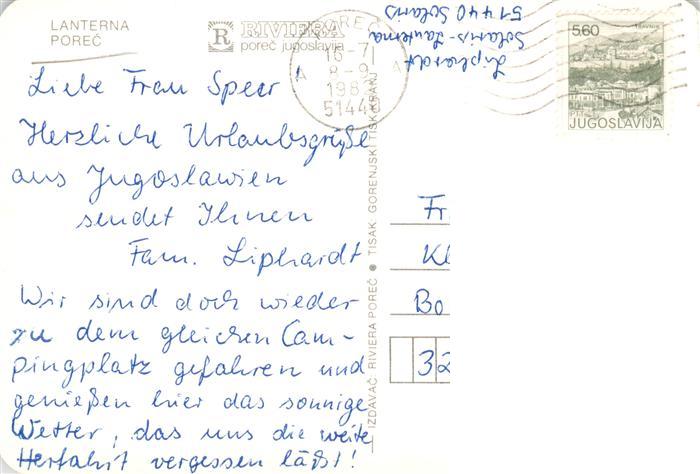 LANTERNA
POREČ
RIVIERA
poreč jugoslavija
Liebe Frau Speer!
Herzliche Urlaubsgrüße
aus Jugoslawien
sendet Ihnen
Fam. Liphardt
Wir sind doch wieder
zu dem gleichen Cam-
pingplatz gefahren und
genießen hier das sonnige
Wetter, das uns die weite
Herfahrt vergessen läßt!
IZDAVAČ RIVIERA POREČ ● TISAK GORENJSKI TISK KRANJ
16-7
8-9
51440
A A
Liphardt
Solaris-Lanterna
51440 Solaris
5.60
JUGOSLAVIJA
Fr
Kl
Bo
32